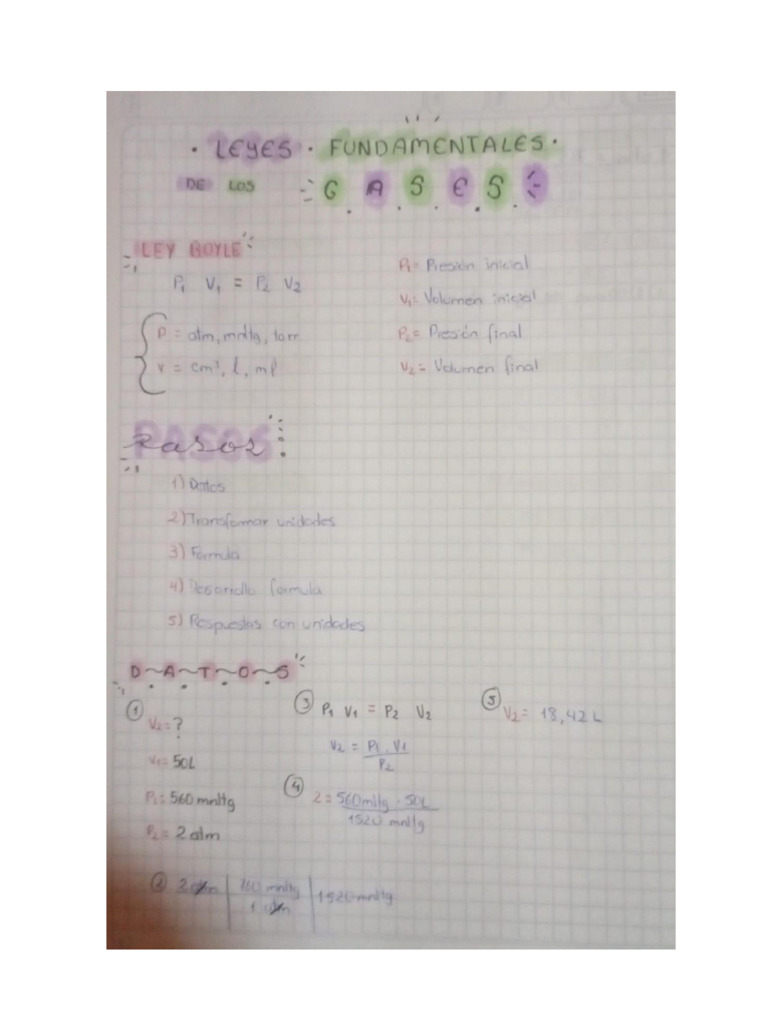 • LEYES • FUNDAMENTALES •
DE LOS G A S E S
LEY BOYLE
P₁ V₁ = P₂ V₂
P = atm, mmHg, torr
V = cm³, l, ml
P₁= Presión inicial
V₁= Volumen inicial
P₂= Presión final
V₂= Volumen final
PASOS
1) Datos
2) Transformar unidades
3) Formula
4) Desarrollo formula
5) Respuestas con unidades
D~A~T~O~S
① V₂=?
V₁= 50L
P₁= 560 mmHg
P₂= 2 atm
② 2 atm | 760 mmHg | 1520 mmHg
1 atm
③ P₁ V₁ = P₂ V₂
V₂ = P₁ . V₁
P₂
④ 2 = 560 mmHg . 50L
1520 mmHg
⑤ V₂= 18,42 L